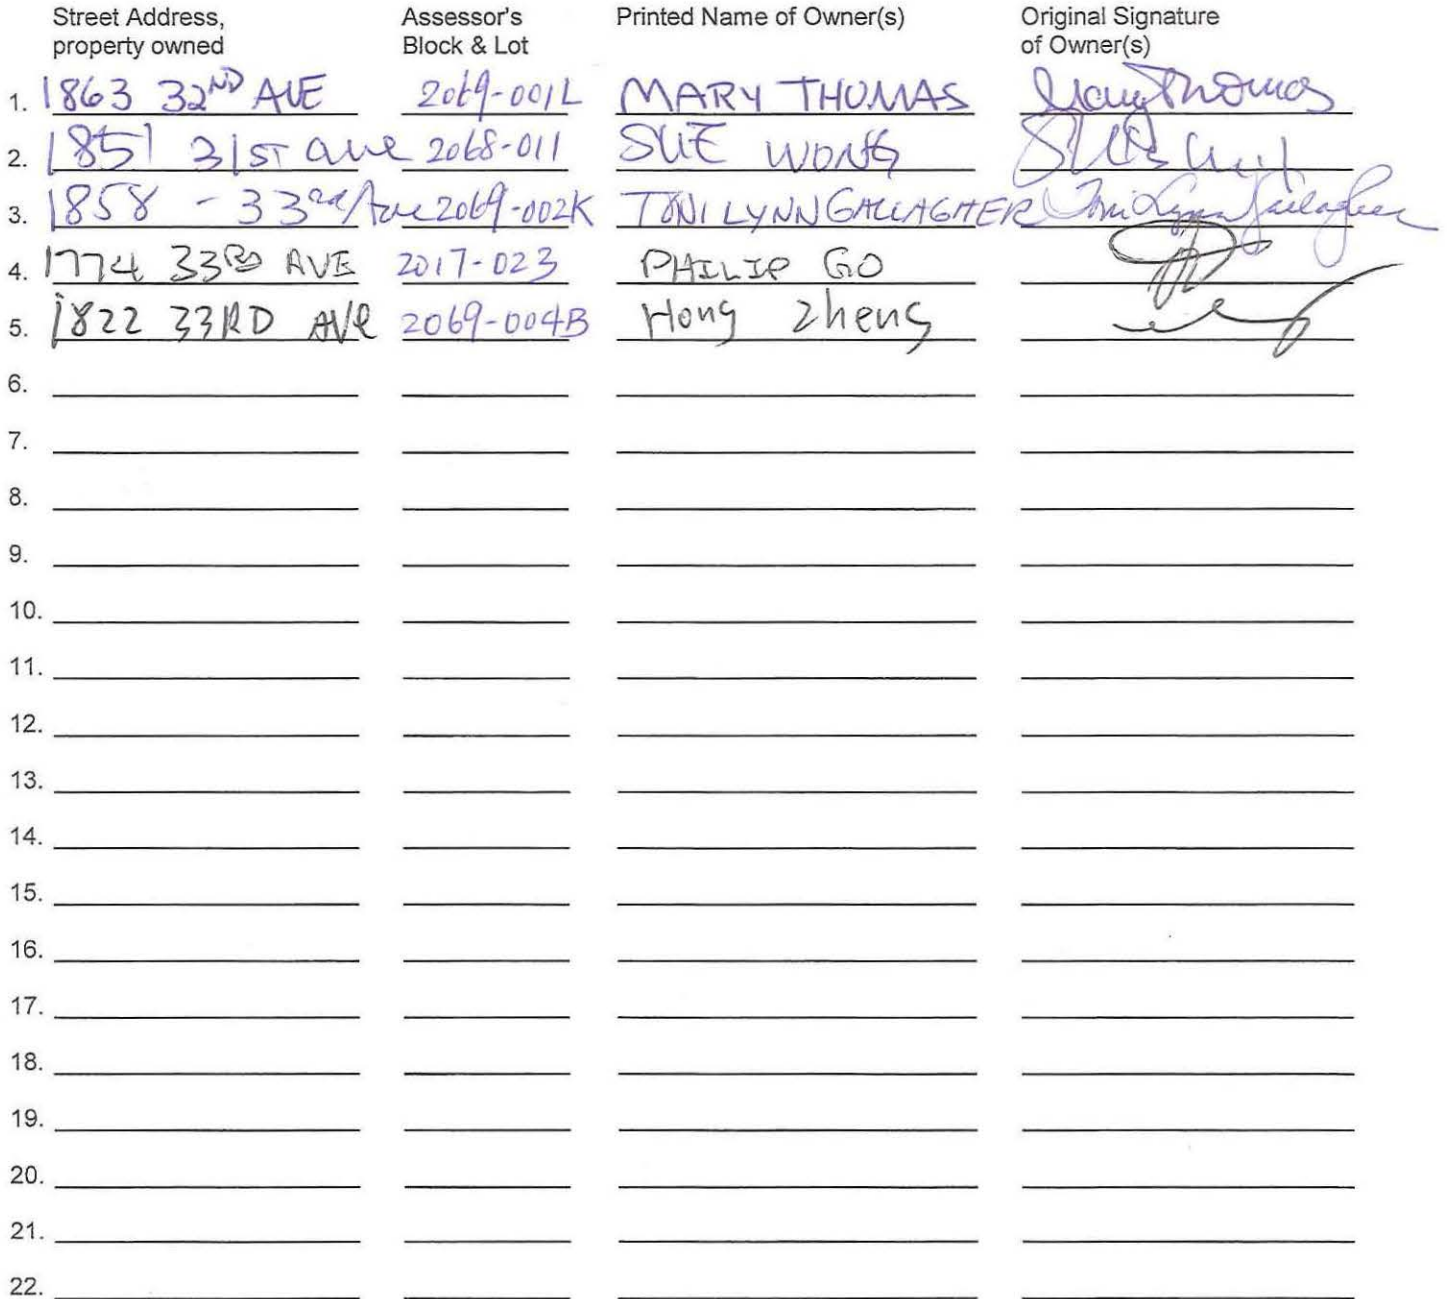 Street Address, property owned Assessor's Block & Lot Printed Name of Owner(s) Original Signature of Owner(s)
1. 1863 32ND AVE 2069-001L MARY THOMAS Mary Thomas
2. 1851 31ST ave 2068-011 SUE WONG
3. 1858 - 33rd Ave 2069-002K TONI LYNN GALLAGHER Toni Lynn Gallagher
4. 1774 33RD AVE 2017-023 PHILIP GO
5. 1822 33RD AVe 2069-004B Hong Zheng
6.
7.
8.
9.
10.
11.
12.
13.
14.
15.
16.
17.
18.
19.
20.
21.
22.